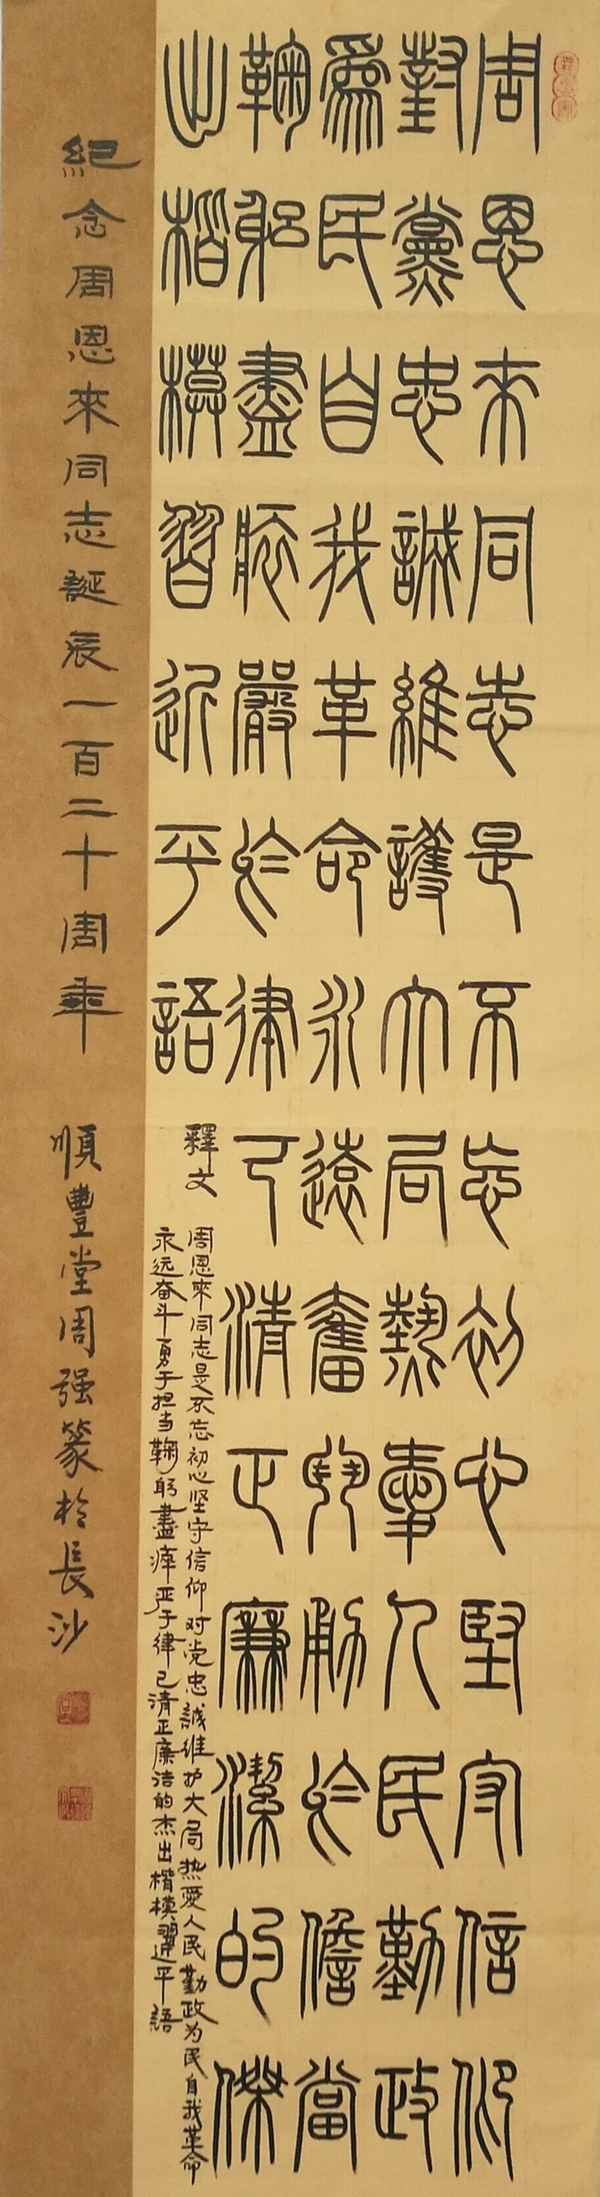 周恩來同志是不忘初心堅守信仰
對黨忠誠維護大局熱愛人民勤政
為民自我革命永遠奮鬥勇於擔當
鞠躬盡瘁嚴於律己清正廉潔的傑
出楷模習近平語
釋文
周恩來同志是不忘初心坚守信仰对党忠誠维护大局热爱人民勤政为民自我革命
永远奋斗勇于担当鞠躬盡瘁严于律己清正廉洁的杰出楷模習近平語
紀念周恩來同志誕辰一百二十周年
順豐堂周强篆於長沙